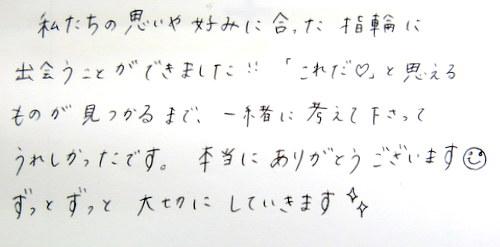 私たちの思いや好みに合った指輪に
出会うことができました!! 「これだ♡」と思える
ものが見つかるまで、一緒に考えて下さって
うれしかったです。本当にありがとうございます☺
ずっとずっと 大切にしていきます✨